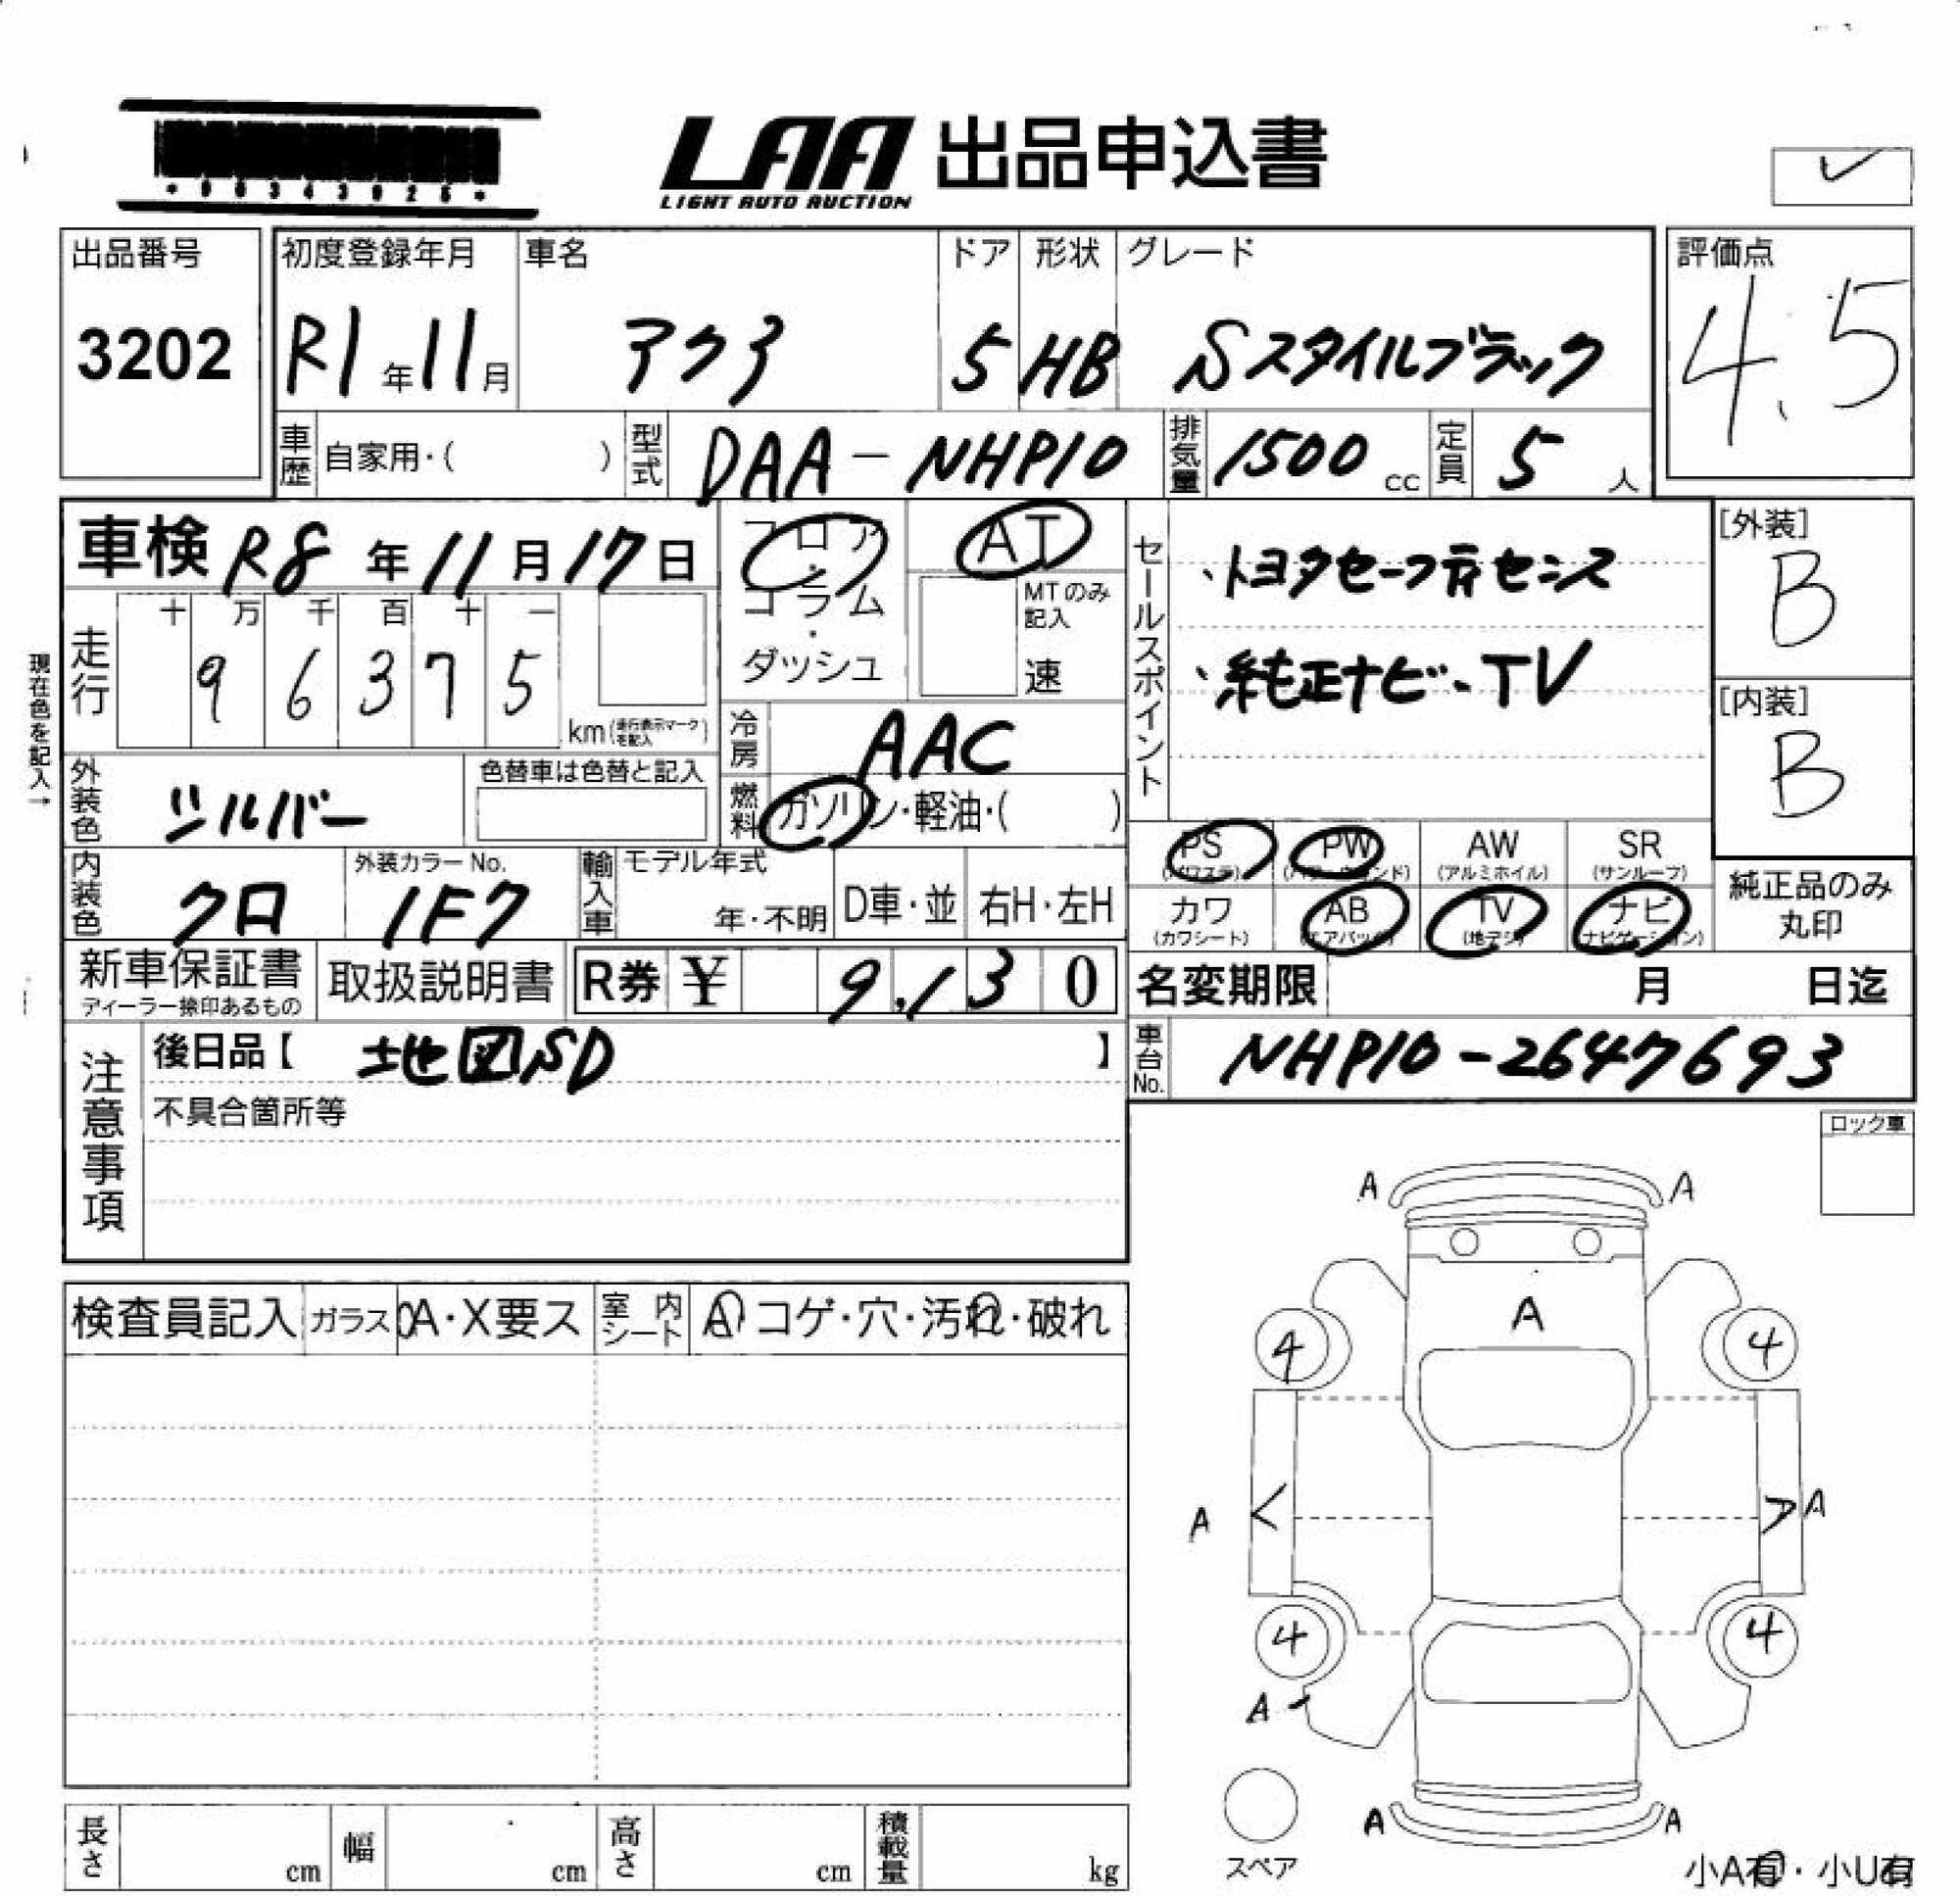 *00343025*
LAA 出品申込書
LIGHT AUTO AUCTION
出品番号 3202
初度登録年月 R1年11月
車名 アクア
ドア 5
形状 HB
グレード Sスタイルブラック
評価点 4.5
車歴 自家用・( )
型式 DAA-NHP10
排気量 1500cc
定員 5人
車検 R8年11月17日
フロア・コラム・ダッシュ
AT
MTのみ記入 速
セールスポイント
・トヨタセーフティセンス
・純正ナビ-TV
[外装] B
[内装] B
現在色を記入→
走行 十万千百十一
96375
km(走行表示マークを記入)
冷房 AAC
外装色 シルバー
色替車は色替と記入
燃料 ガソリン・軽油・( )
内装色 クロ
外装カラーNo. 1F7
輸入車 モデル年式 年・不明
D車・並 右H・左H
PS (パワステ)
PW (パワーウィンド)
AW (アルミホイル)
SR (サンルーフ)
カワ (カワシート)
AB (エアバック)
TV (地デジ)
ナビ (ナビゲーション)
純正品のみ丸印
新車保証書 ディーラー捺印あるもの
取扱説明書
R券 ¥ 9,130
名変期限 月 日迄
注意事項
後日品【 地図SD 】
車台No. NHP10-2647693
不具合箇所等
ロック車
A A
検査員記入 ガラス A・X要ス 室内シート A コゲ・穴・汚れ・破れ
A
4 4
A < > A
4 4
A
スペア
A A
長さ cm 幅 cm 高さ cm 積載量 kg
小A有・小U有